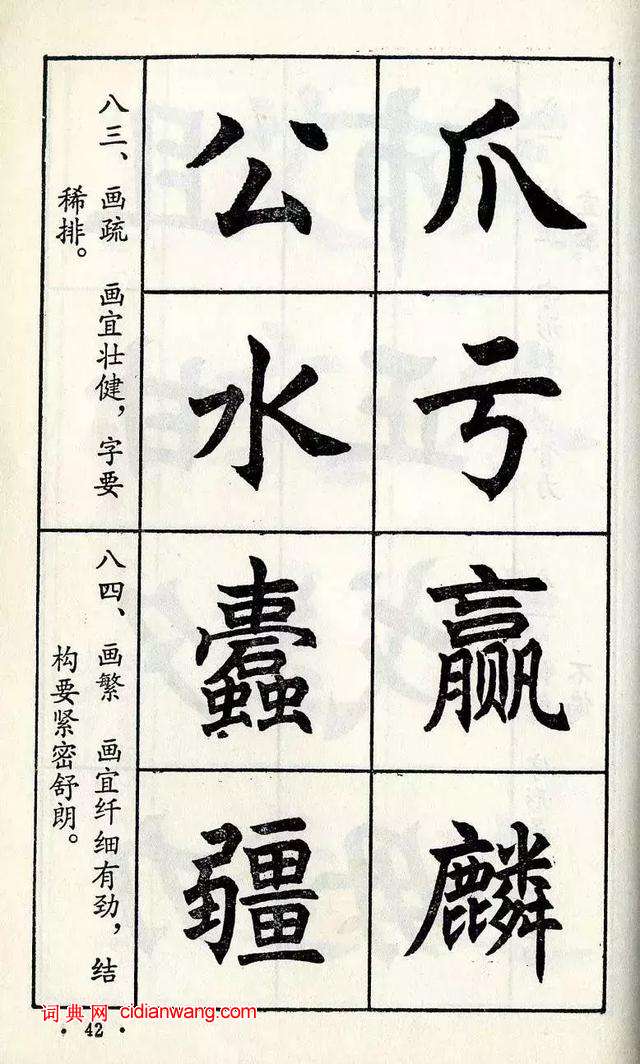 爪
亏
公
水
八三、画疏　画宜壮健，字要
稀排。
赢
麟
蠹
疆
八四、画繁　画宜纤细有劲，结
构要紧密舒朗。
词典网 cidianwang.com
·42·